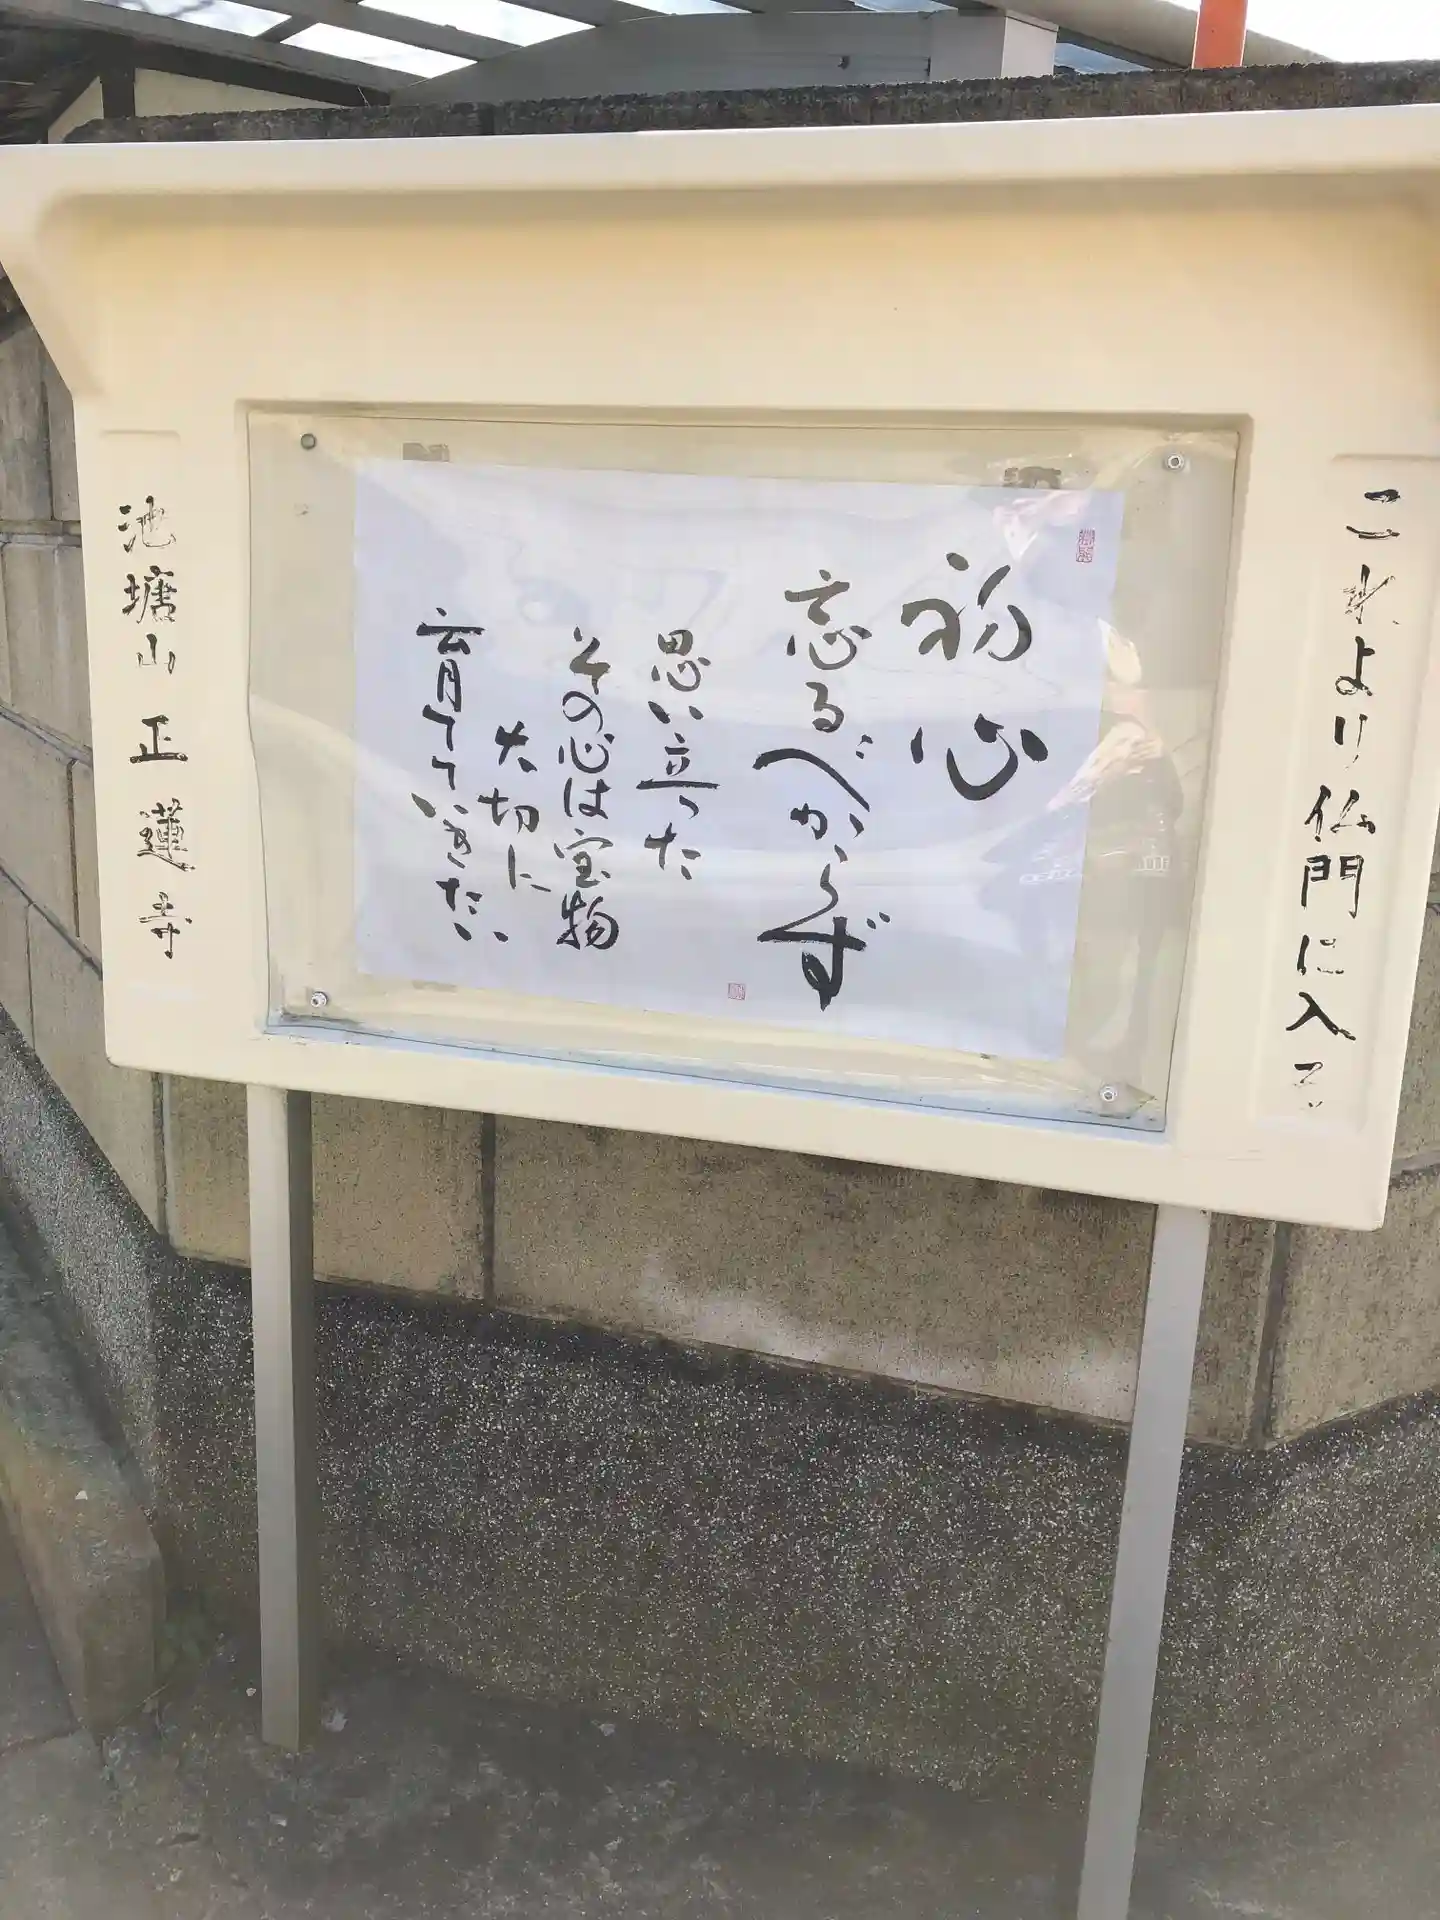 こゝより仏門に入る
初心
忘るべからず
思い立った
その心は宝物
大切に
育てていきたい
池塘山 正蓮寺